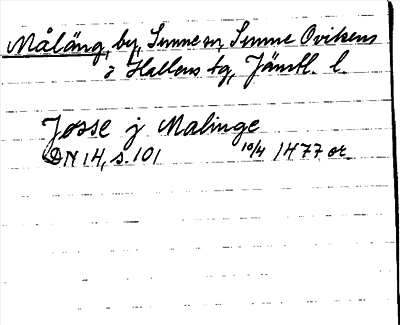 Måläng, by, Sunne sn, Sunne Ovikens
o Hallens tg, Jämtl. l.
Josse j Malinge
DN 14, s. 101 10/4 1477 or.